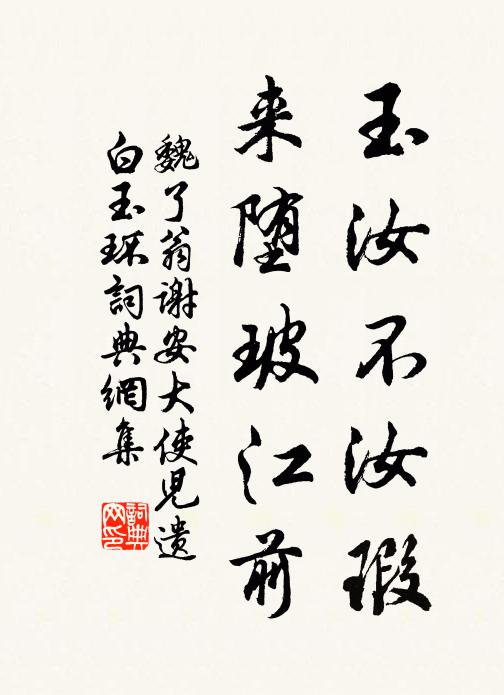 玉汝不汝瑕
来堕玻江前
魏了翁谢安大使儿遗
白玉环詞典網集
詞典网印